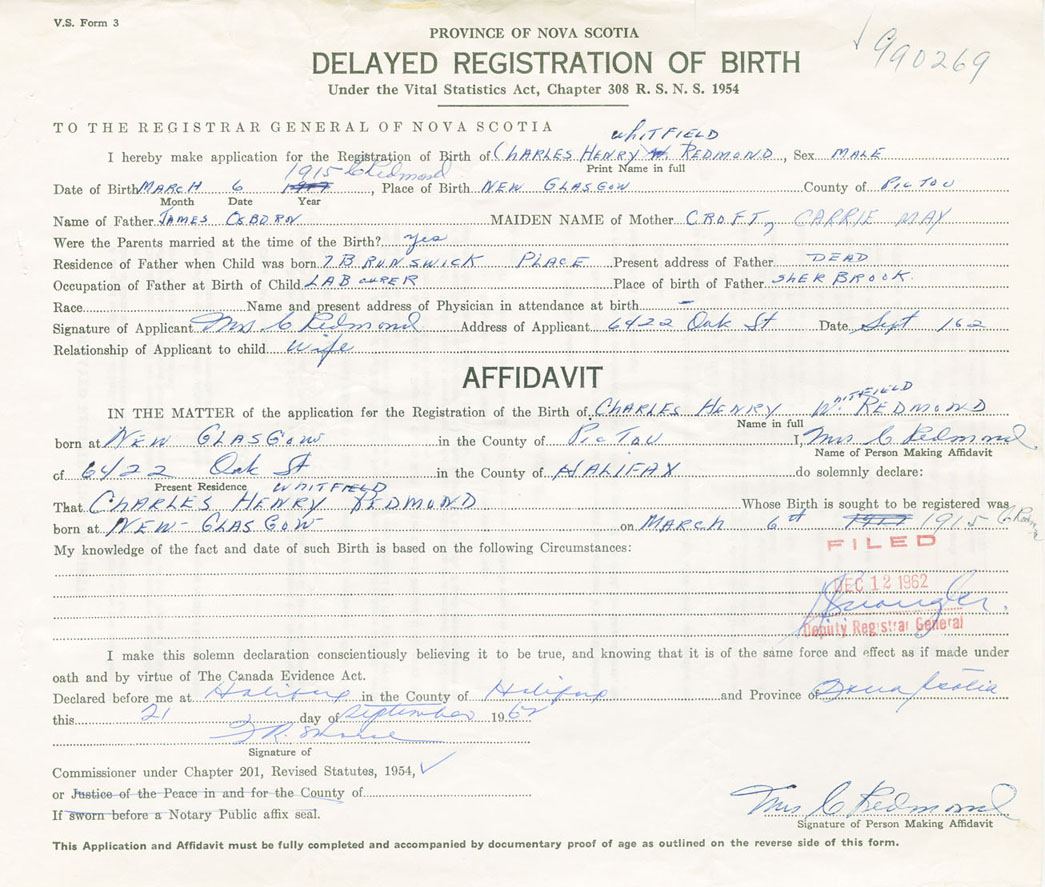 V.S. Form 3
990269
PROVINCE OF NOVA SCOTIA
DELAYED REGISTRATION OF BIRTH
Under the Vital Statistics Act, Chapter 308 R. S. N. S. 1954
TO THE REGISTRAR GENERAL OF NOVA SCOTIA
WHITFIELD
I hereby make application for the Registration of Birth of CHARLES HENRY W. REDMOND, Sex MALE
Print Name in full
1915 C Redmond
Date of Birth MARCH 6 , Place of Birth NEW GLASGOW County of PICTOU
Month Date Year
Name of Father JAMES OSBORN MAIDEN NAME of Mother CROFT, CARRIE MAY
Were the Parents married at the time of the Birth? yes
Residence of Father when Child was born 7 BRUNSWICK PLACE Present address of Father DEAD
Occupation of Father at Birth of Child LABOURER Place of birth of Father SHERBROOK.
Race Name and present address of Physician in attendance at birth –
Signature of Applicant Mrs C Redmond Address of Applicant 6422 Oak St Date Sept 162
Relationship of Applicant to child Wife
AFFIDAVIT
HITFIELD
IN THE MATTER of the application for the Registration of the Birth of CHARLES HENRY W. REDMOND
Name in full
born at NEW GLASGOW in the County of PICTOU I, Mrs C Redmond
Name of Person Making Affidavit
of 6422 Oak St in the County of HALIFAX do solemnly declare:
Present Residence WHITFIELD
That CHARLES HENRY REDMOND Whose Birth is sought to be registered was
born at NEW-GLASGOW on MARCH 6th 1915
My knowledge of the fact and date of such Birth is based on the following Circumstances:
FILED
DEC 12 1962
Deputy Registrar General
I make this solemn declaration conscientiously believing it to be true, and knowing that it is of the same force and effect as if made under
oath and by virtue of The Canada Evidence Act.
Declared before me at Halifax in the County of Halifax and Province of Nova Scotia
this 21 day of September 1962
Signature of
Commissioner under Chapter 201, Revised Statutes, 1954, ✓
or Justice of the Peace in and for the County of
If sworn before a Notary Public affix seal.
Mrs C Redmond
Signature of Person Making Affidavit
This Application and Affidavit must be fully completed and accompanied by documentary proof of age as outlined on the reverse side of this form.